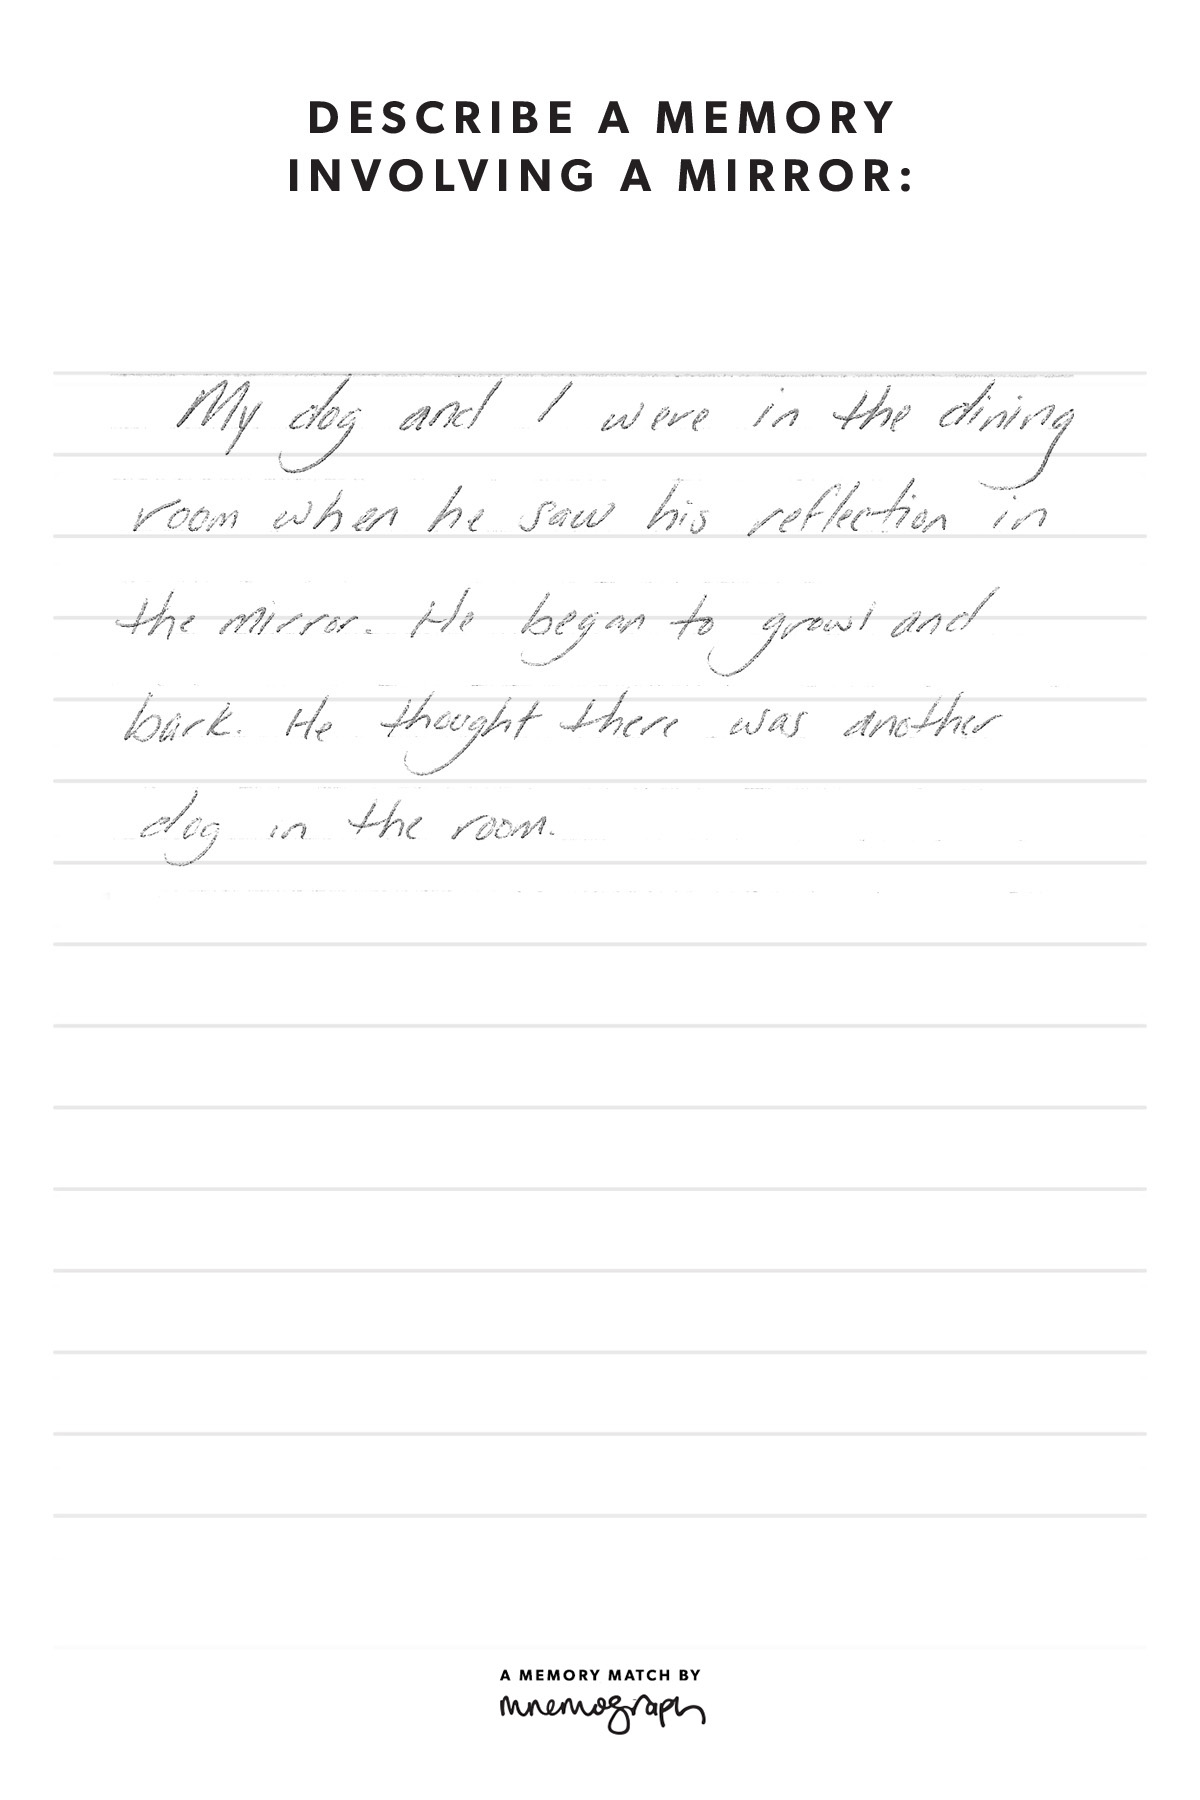 DESCRIBE A MEMORY
INVOLVING A MIRROR:
My dog and I were in the dining
room when he saw his reflection in
the mirror. He began to growl and
bark. He thought there was another
dog in the room.
A MEMORY MATCH BY
mnemograph